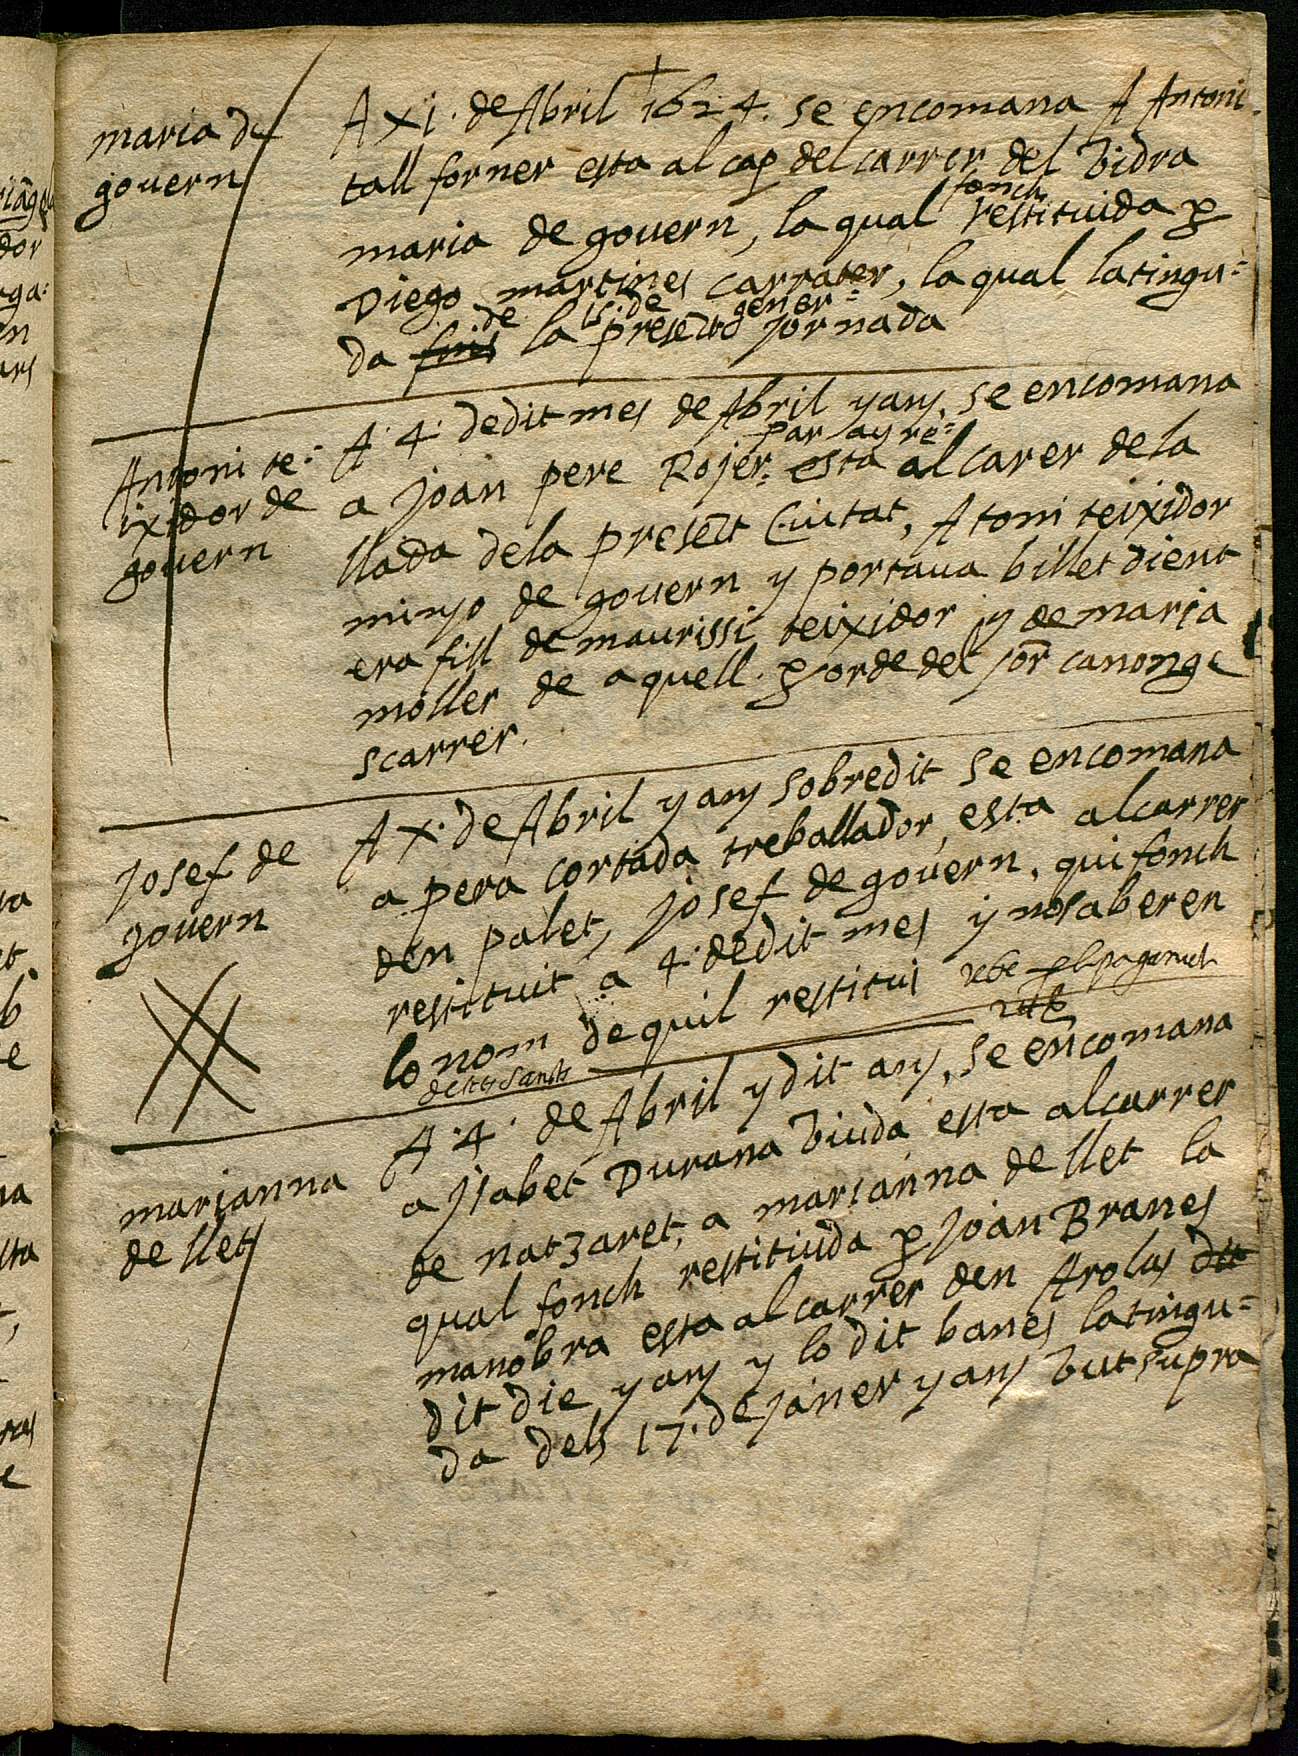 maria de
govern
A Xi. de Abril 1624. se encomana A Antoni
tall forner esta al cap del carrer del Vidra
fonch
maria de govern, la qual restituida p
Diego martines carrater, la qual la tingu=
de 15. de gener=
da fins la presēt jornada
Antoni te=
ixidor de
govern
A 4. dedit mes de Abril y any, se encomana
par ayre=
a joan pere Rojer= esta al carer de la
llada dela presēt Ciutat, Atoni teixidor
minyo de govern y portava billet dient
era fill de maurissi teixidor y de maria
moller de aquell. p orde del sor canonge
scarrer.
Josef de
govern
A X. de Abril y any sobredit se encomana
a pera cortada treballador, esta al carrer
den palet, josef de govern, qui fonch
restituit a 4. dedit mes y nosaberen
lo nom de quil restitui
marianna
de llet
A. 4. de Abril y dit any, se encomana
a Isabet Durana viuda esta al carrer
de natzaret, a marianna de llet la
qual fonch restituida p joan Branes
manobra esta al carrer den Arolas dit
dit die y any y lo dit banes la tingu=
da dels 17. de janer y any vut supra